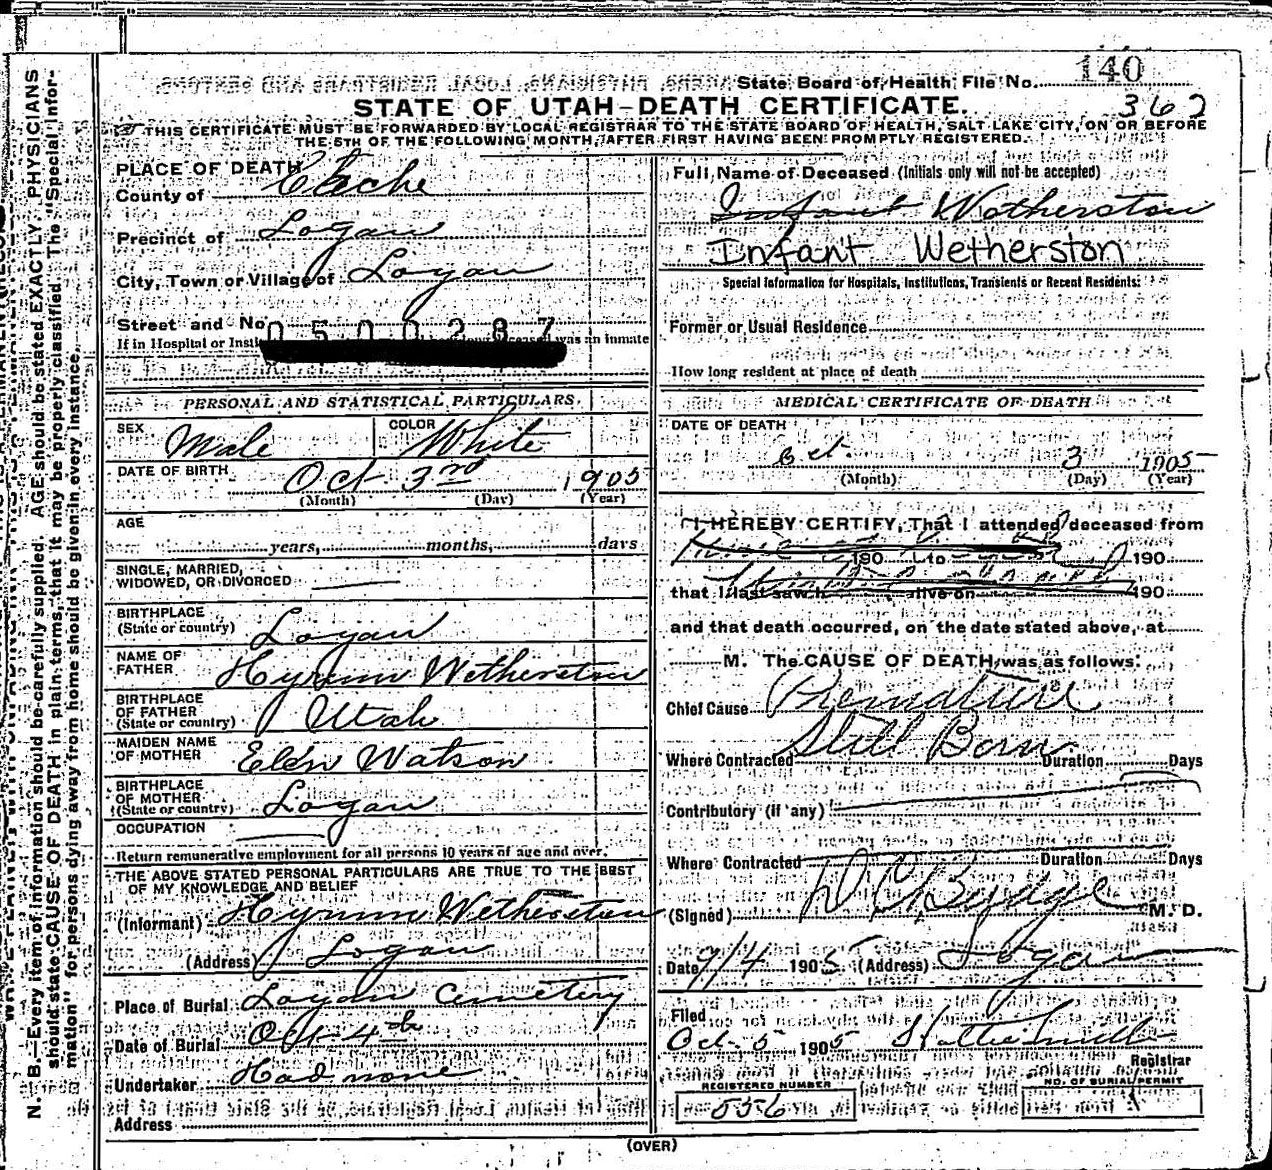 State Board of Health File No. 140
362
STATE OF UTAH—DEATH CERTIFICATE.
THIS CERTIFICATE MUST BE FORWARDED BY LOCAL REGISTRAR TO THE STATE BOARD OF HEALTH, SALT LAKE CITY, ON OR BEFORE
THE 5TH OF THE FOLLOWING MONTH, AFTER FIRST HAVING BEEN PROMPTLY REGISTERED.
PLACE OF DEATH
County of Cache
Precinct of Logan
City, Town or Village of Logan
Street and No. 0500287
If in Hospital or Insti deceased was an inmate
PERSONAL AND STATISTICAL PARTICULARS.
SEX Male COLOR White
DATE OF BIRTH Oct 3rd 1905
(Month) (Day) (Year)
AGE
years, months, days
SINGLE, MARRIED,
WIDOWED, OR DIVORCED
BIRTHPLACE
(State or country) Logan
NAME OF
FATHER Hyrum Wetherston
BIRTHPLACE
OF FATHER
(State or country) Utah
MAIDEN NAME
OF MOTHER Eldn Watson
BIRTHPLACE
OF MOTHER
(State or country) Logan
OCCUPATION
Return remunerative employment for all persons 10 years of age and over.
THE ABOVE STATED PERSONAL PARTICULARS ARE TRUE TO THE BEST
OF MY KNOWLEDGE AND BELIEF
(Informant) Hyrum Wetherston
(Address) Logan
Place of Burial Logan Cemetery
Date of Burial Oct 4th
Undertaker Had none
Address
Full Name of Deceased (Initials only will not be accepted)
Infant Wetherston
Infant Wetherston
Special Information for Hospitals, Institutions, Transients or Recent Residents:
Former or Usual Residence
How long resident at place of death
MEDICAL CERTIFICATE OF DEATH
DATE OF DEATH
Oct. 3 1905
(Month) (Day) (Year)
I HEREBY CERTIFY, That I attended deceased from
190 to 190
that I last saw h alive on 190
and that death occurred, on the date stated above, at
M. The CAUSE OF DEATH was as follows:
Chief Cause Premature
Still Born
Where Contracted Duration Days
Contributory (if any)
Where Contracted Duration Days
(Signed) D C Budge M. D.
Date 9/4 1905 (Address) Logan
Filed
Oct 5 1905 Hattie Smith
Registrar
REGISTERED NUMBER
556
NO. OF BURIAL PERMIT
1
(OVER)
N. B.—Every item of information should be carefully supplied. AGE should be stated EXACTLY. PHYSICIANS
should state CAUSE OF DEATH in plain terms, that it may be properly classified. The "Special Infor-
mation" for persons dying away from home should be given in every instance.